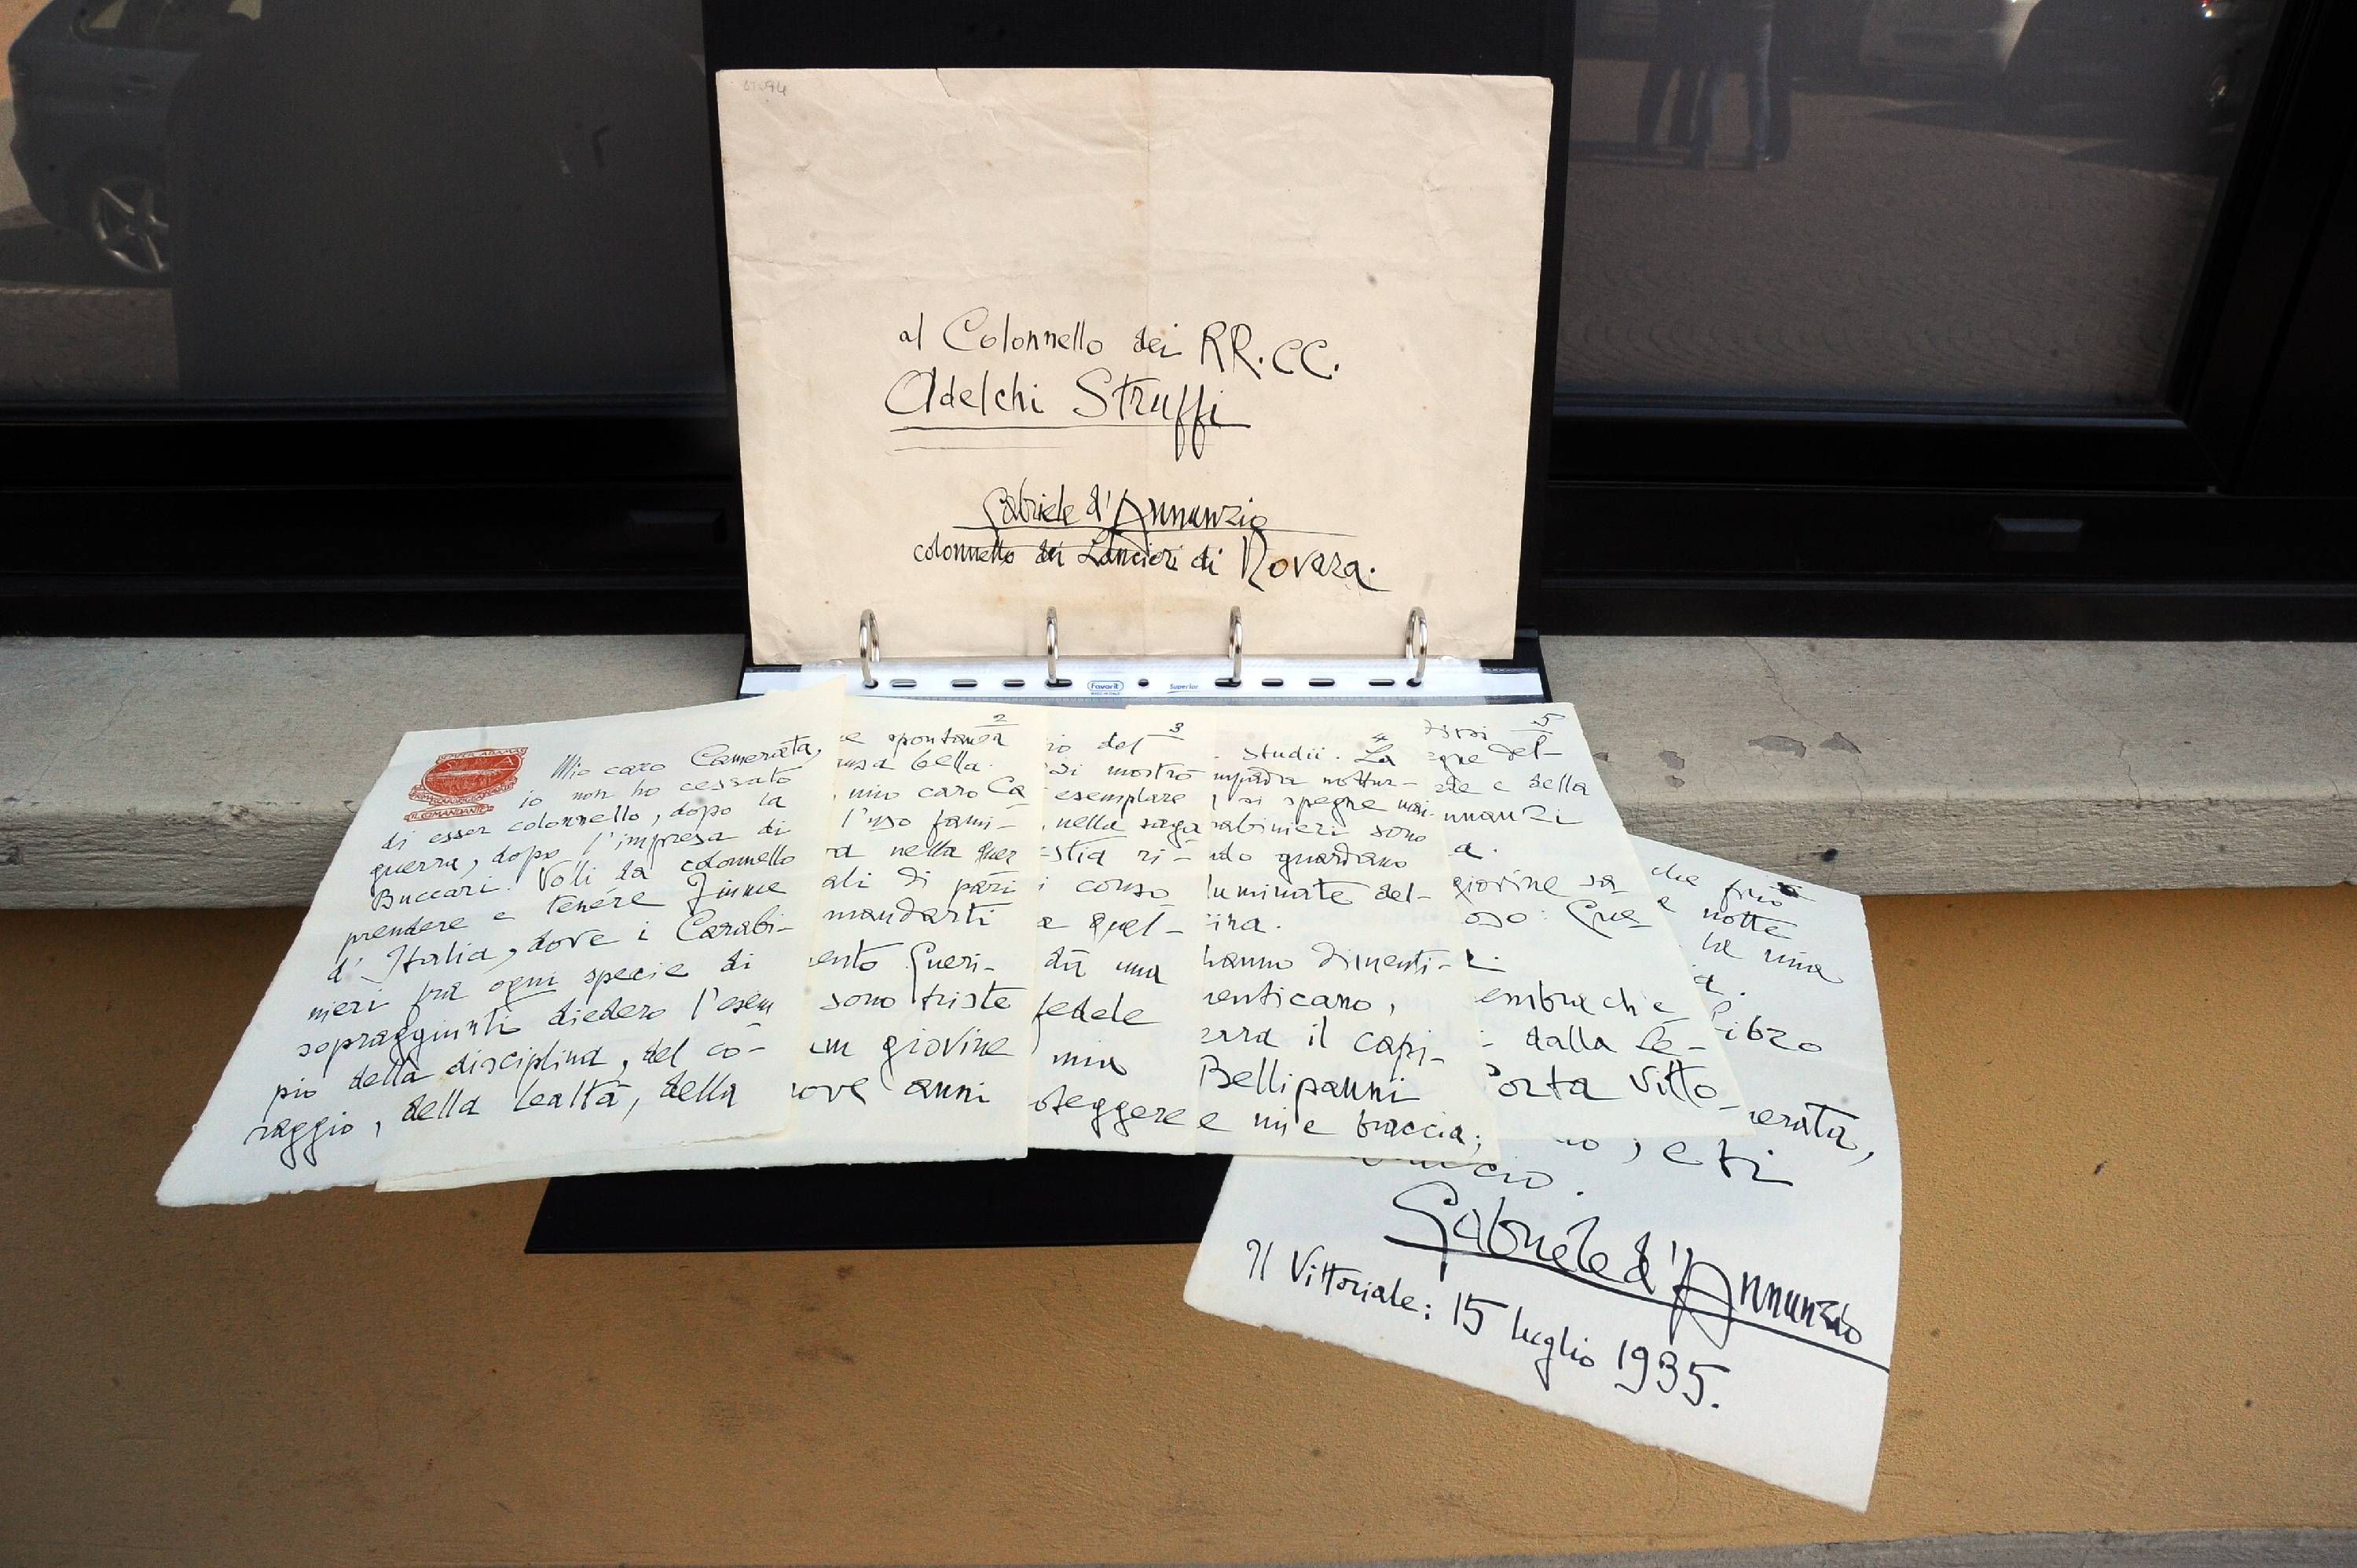 al Colonnello dei RR.CC.
Adelchi Struffi
Gabriele d'Annunzio
colonnello dei Lancieri di Novara.
Favorit
Superior
IL COMANDANTE
Mio caro Camerata,
io non ho cessato
di esser colonnello, dopo la
guerra, dopo l'impresa di
Buccari. Volli da colonnello
prendere e tenére Fiume
d'Italia, dove i Carabi-
nieri fra ogni specie di
sopraggiunti diedero l'esem
pio della disciplina, del co-
raggio, della lealtà, della
2
e spontanea
bella.
mio caro Ca
l'uso fami-
a nella guer
ali di pari
mandarti
ento Gueri-
sono triste
un giovine
ove anni
3
io del
si mostrò
esemplare
, nella saga
stia ri-
i conso
a quel-
dà una
fedele
mia
oteggere
4
studii. La
mpada nottur-
si spegne mai.
rabinieri sono
ndo guardano
luminate del-
ina.
hanno dimenti-
enticano,
erra il capi-
Bellipanni
e mie braccia;
5
del-
e della
nnanzi
a.
giovine sa
oso: Que-
embra ch'e
dalla Fe-
Porta Vitto-
che
e notte
ha una
a.
Libro
erata,
, e ti
Gabriele d'Annunzio
Il Vittoriale: 15 luglio 1935.